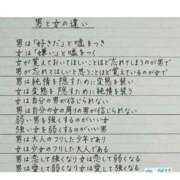 男と女の違い
男は「好きだ」と嘘をつき
女は「嫌い」と嘘をつく
女が覚えておいてほしいことほど忘れてしまうのが男で
男が忘れてほしいと思うことほど覚えているのが女で
男は純情を隠すために変態を装い
女は変態を隠すために純情を装う
男は自分の男が信じられない
女は自分の周りの男が信じられない
弱い男を強くするのが女で
強い女を弱くするのが男で
男は大人のフリした少年であり
女は少女のフリした大人である
男は恋して強くなり愛して弱くなる
女は恋して弱くなり愛して強くなる